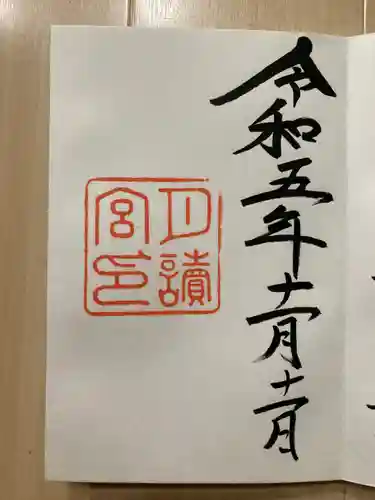 令和五年十一月十一日
月讀
宮印